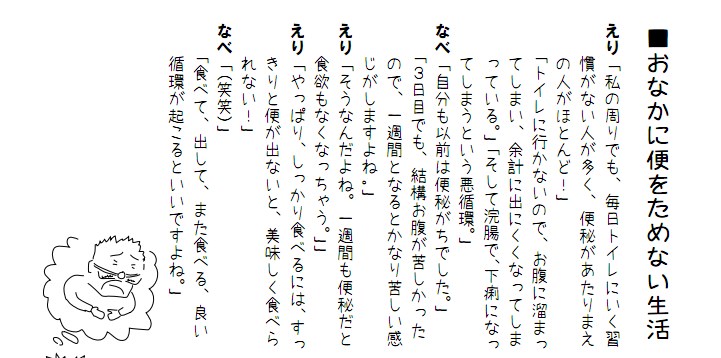 ■おなかに便をためない生活
えり「私の周りでも、毎日トイレにいく習
慣がない人が多く、便秘があたりまえ
の人がほとんど！」
「トイレに行かないので、お腹に溜まっ
てしまい、余計に出にくくなってしま
っている。」「そして浣腸で、下痢になっ
てしまうという悪循環。」
なべ「自分も以前は便秘がちでした。」
「３日目でも、結構お腹が苦しかった
ので、一週間となるとかなり苦しい感
じがしますよね。」
えり「そうなんだよね。一週間も便秘だと
食欲もなくなっちゃう。」」
えり「やっぱり、しっかり食べるには、すっ
きりと便が出ないと、美味しく食べら
れない！」
なべ「(笑笑)」
「食べて、出して、また食べる、良い
循環が起こるといいですよね。」